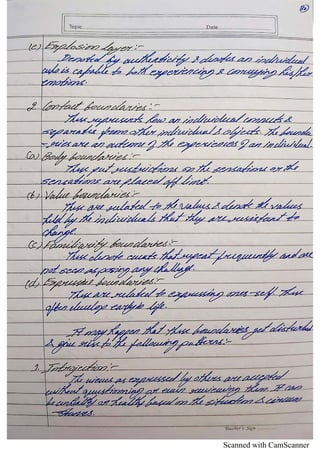 Topic Date
(e) Explosion layer:-
Denoted by authenticity & denotes an individual
who is capable to both experiencing & conveying his/her
emotions.
2. Contact boundaries:-
This represents how an individual connects &
separable from other individual & objects. The bounda-
-ries are an outcome of the experiences of an individual.
(a) Body boundaries:-
They put restrictions on the sensations or the
sensations are placed off limit.
(b) Value boundaries:-
They are related to the values & denote the values
held by the individuals that they are resistent to
change.
(c) Familiarity boundaries:-
They denote events that repeat frequently and are
not seen as posing any challenge.
(d) Expressive boundaries:-
They are related to expressing ones-self. They
often develop early in life.
It may happen that these boundaries get disturbed
& give rise to the following patterns:-
1. Introjection:-
The views as expressed by others are accepted
without questioning or even reviewing them. It can
be unhealthy or healthy based on the situation & circum
-stances.
Teacher's Sign
Scanned with CamScanner